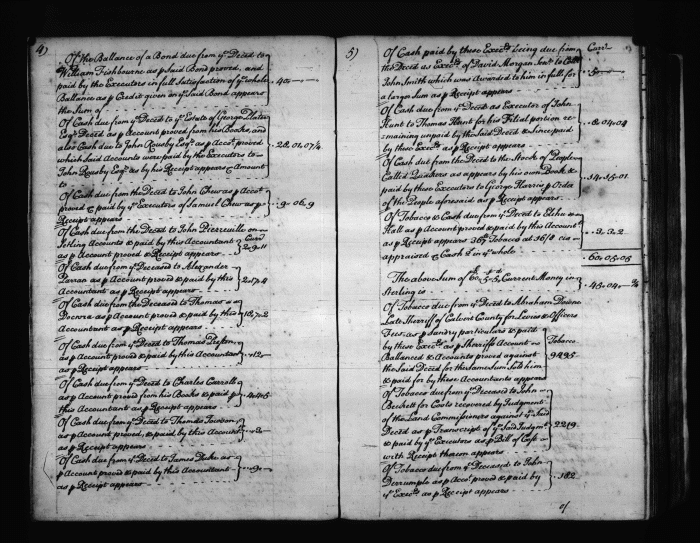 4)
Of the Ballance of a Bond due from ye Deced to
William Fishbourne as p Said Bond proved, and
paid by the Executors in full Satisfaction of ye whole
Ballance as p Credit given on ye Said Bond appears
the Sum of
40
Of Cash due from ye Deced to ye Estate of George Slater
Esqr Deced as p Account proved from his Books, and
also Cash due to John Rousby Esqr as p Acct proved
which Said Accounts were paid by the Executors to
John Rousby Esqr as by his Receipt appears Amount
to
28,,01,,07¼
Of Cash due from the Deced to John Chew as p Accot
proved & paid by ye Executors of Samuel Chew as p
Receipt appears
9,,06,,9
Of Cash due from the Deced to John Pierreville on
Selling Accounts & paid by this Accountant
as p Account proved & Receipt appears
Curr
2,,9,,11
Of Cash due from ye Deceased to Alexander
Parran as p Account proved & paid by this
Accountant as p Receipt appears
2,,17,,4
Of Cash due from the Deceased to Thomas
as p Account proved & paid by this
Accountant as p Receipt appears
18,,7,,2
Of Cash due from ye Deced to Thomas
as p Account proved & paid by this Accountant
as p Receipt appears
,,12
Of Cash due from ye Deced to Charles Carroll
as p Account proved from his Books & paid p
this Accountant as p Receipt appears
4,,4,,5
Of Cash due from ye Deced to Thomas
as p Account proved, & paid by this Account
as p Receipt appears
Of Cash due from ye Deced to James Duke as
p Account proved & paid by this Accountant
as p Receipt appears
9
5)
Curr
Of Cash paid by these Execrs being due from
the Deced as Execr of David Morgan Senr to
John Smith which was Awarded to him in full for
a larger Sum as p Receipt appears
5
Of Cash due from ye Deced as Executor of John
Hunt to Thomas Hunt for his Filial portion re-
maining unpaid by the Said Deced & Since paid
by these Execrs as p Receipt appears
8,,04,,04
Of Cash due from the Deced to the Stock of People
Call'd Quakers as appears by his own Book &
paid by these Executors to George Harris p Order
of the People aforesaid as p Receipt appears
14,,15,,01
Of Tobacco & Cash due from ye Deced to Elihu
Hall as p Account proved & paid by this Account
as p Receipt appears 367 Tobacco at 16/8
appraised & Cash in ye whole
3,,3,,2
60,,05,,05
The above Sum of 60,,5,,5 Current Money in
Sterling is
45,,04
Of Tobacco due from ye Deced to Abraham Downe
Late Sherriff of Calvert County for Levies & Officers
Fees as p Sundry particulars & paid
by these Execrs as p Sherriffs Account as
Ballanced & Accounts proved against
the Said Deced for the Same Sum Sold him
& paid for by these Accountants appears
Tobacco
9495
Of Tobacco due from ye Deceased to John
Beckett for Costs recovered by Judgment
of the Land Commissioners against ye Said
Deced as p Transcript of ye Said Judgmt
& paid by ye Executors as p Bill of Cost
with Receipt thereon appears
2219
Of Tobacco due from ye Deceased to John
Derrumple as p Acct proved & paid by
ye Execrs as p Receipt appears
182
of